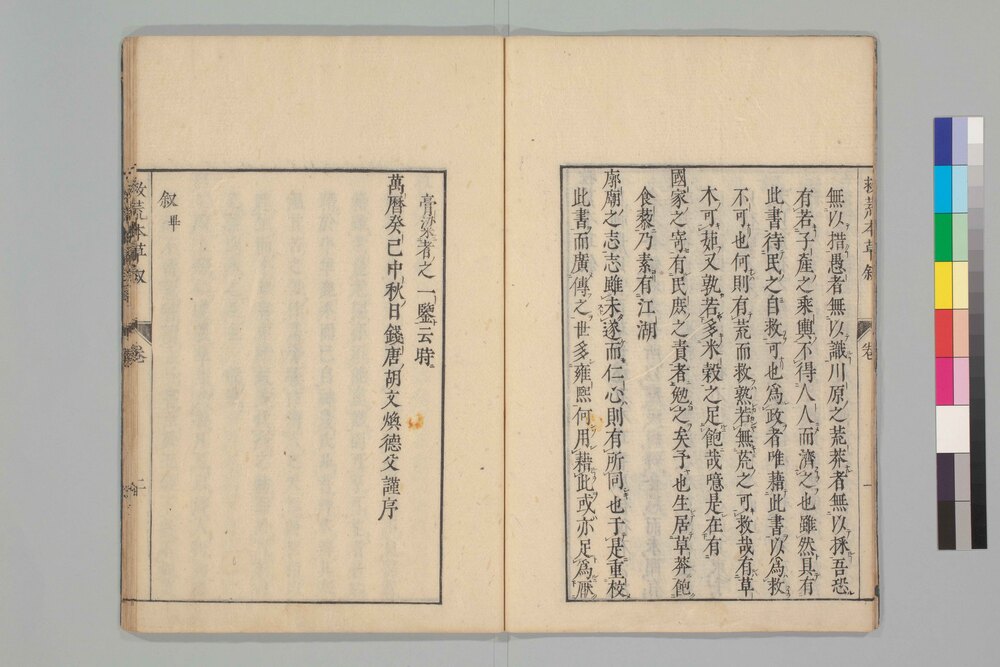 救荒本草叙 卷 一
無以措愚者無以識川原之荒莽者無以採吾恐
有若子產之乘輿不得人人而濟之也雖然具有
此書待民之自救可也為政者唯藉此書以為救
不可也何則有荒而救孰若無荒之可救哉有草
木可茹又孰若多米穀之足飽哉噫是在有
國家之寄有民庶之責者勉之矣予也生居草莽飽
食藜乃素有江湖
廊廟之志志雖未遂而仁心則有所同也于是重校
此書而廣傳之世多雍熙何用藉此或亦足為厭
膏粱者之一鑒云時
萬曆癸巳中秋日錢唐胡文煥德父謹序
叙畢
救荒本草叙 卷 二